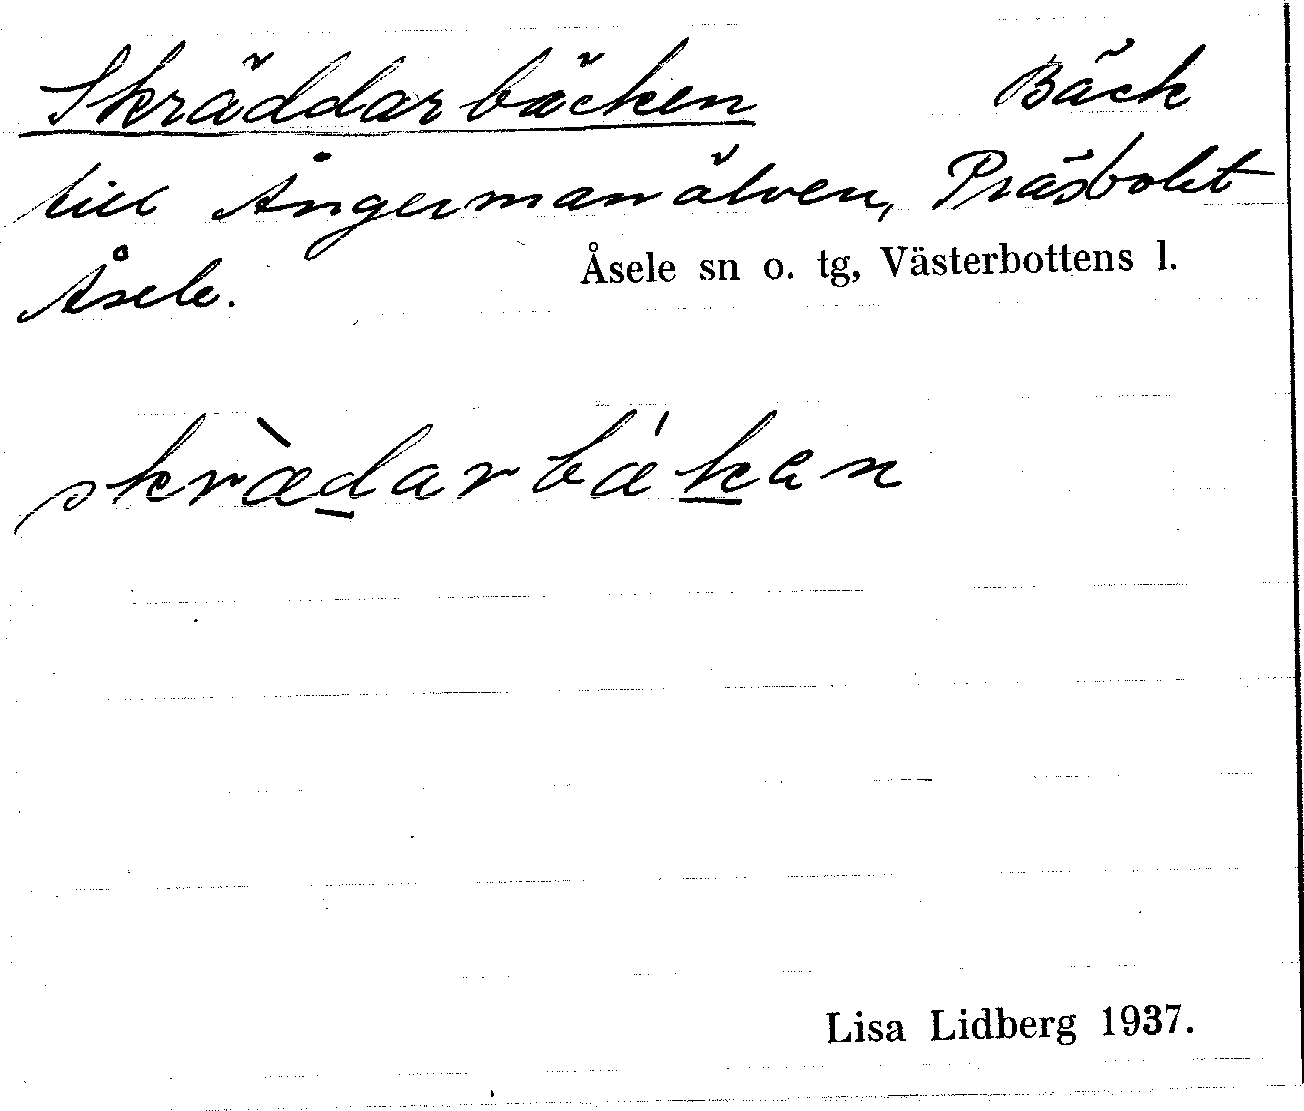 Skräddarbäcken Bäck
till Ångermanälven, Präsbolet
Åsele. Åsele sn o. tg, Västerbottens l.
skræ̀darbækan
Lisa Lidberg 1937.